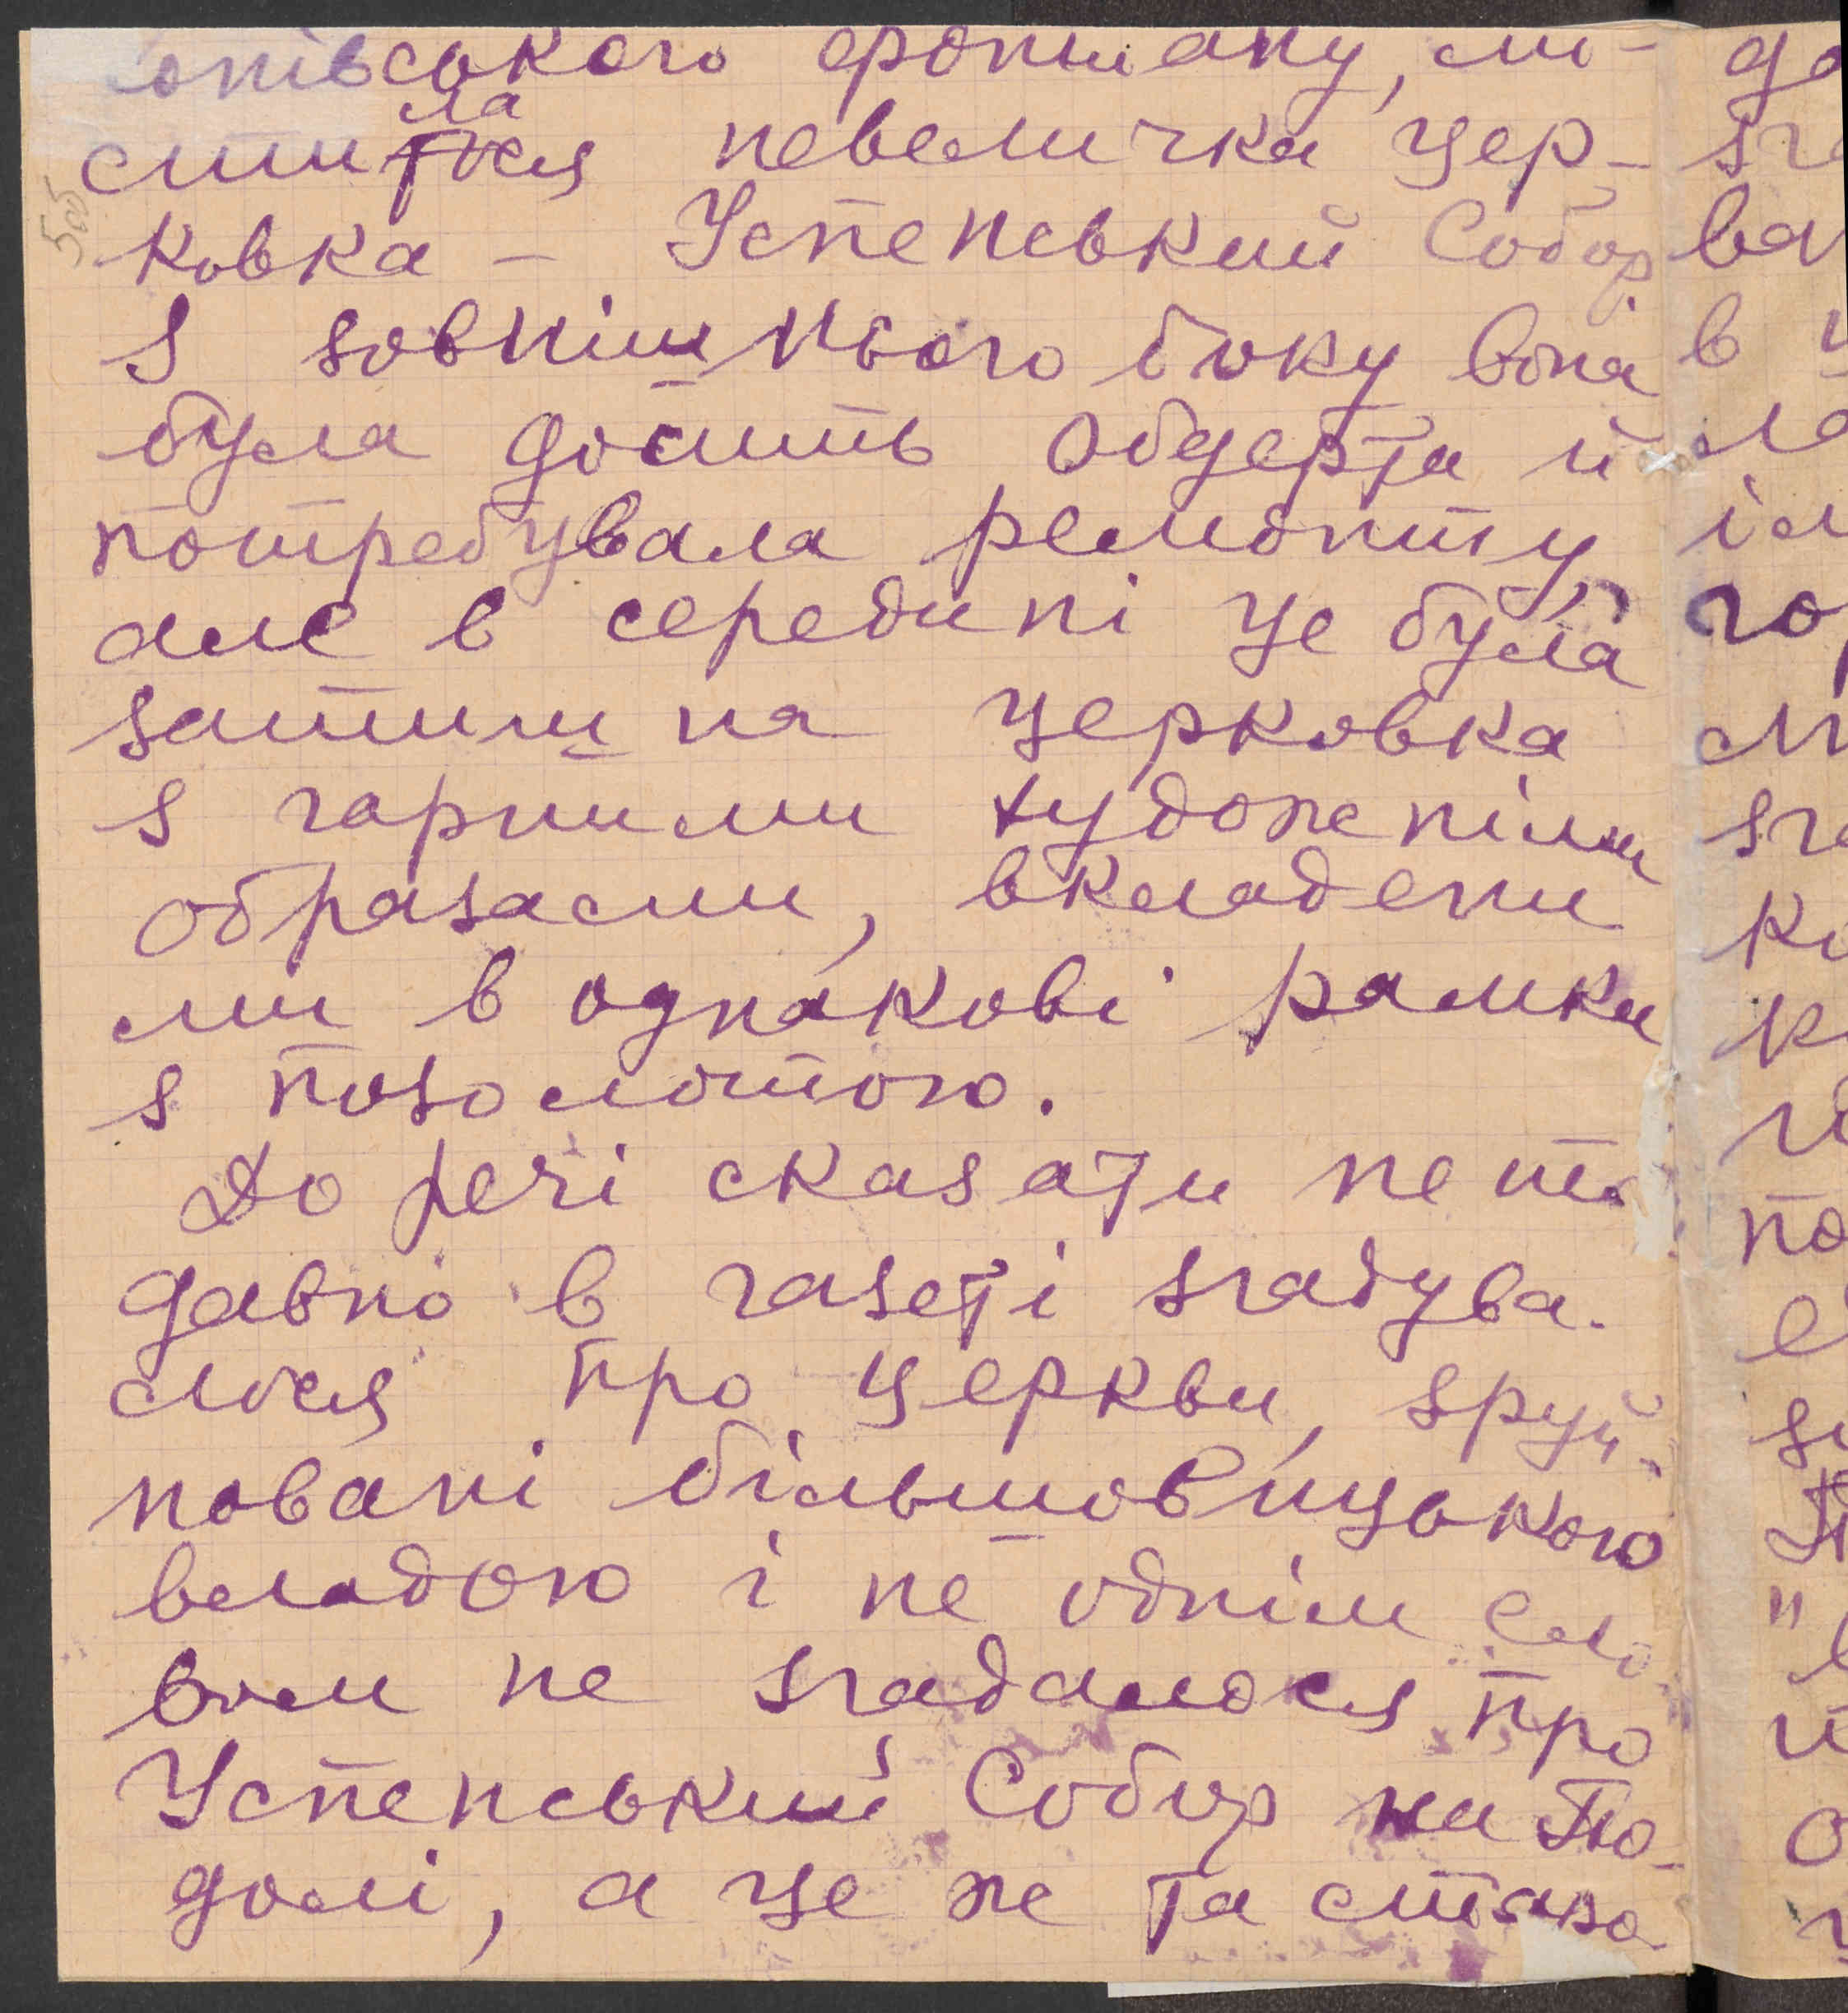 опівського фонтану, мі-
стилася невеличка цер-
ковка – Успенський Собор.
З зовнішнього боку вона
була досить обдерта й
потребувала ремонту,
але в середині це була
затишна церковка
з гарними художніми
образами, вкладени
ми в однакові рамки
з позолотою.
До речі сказати не що
давно в газеті згадува-
лося про церкви, зруй-
новані більшовицькою
владою і не одним сло
вом не згадалося про
Успенський Собор на По-
долі, а це же та стара